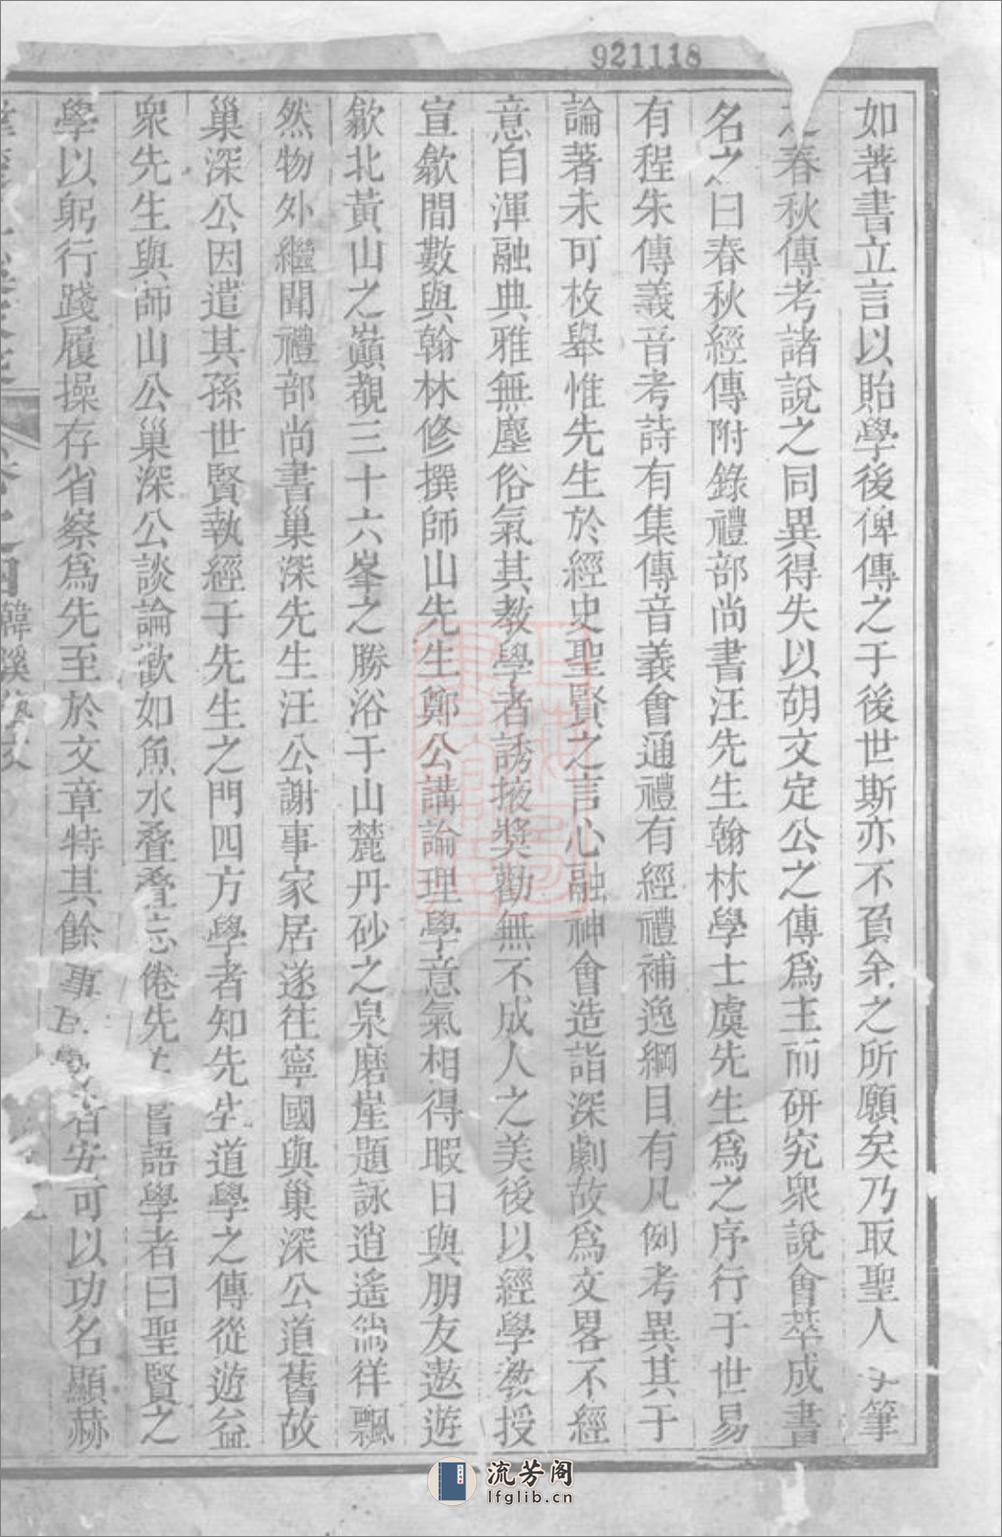 921118
如著書立言以貽學後俾傳之于後世斯亦不負余之所願矣乃取聖人手筆
之春秋傳考諸說之同異得失以胡文定公之傳爲主而研究衆說會萃成書
名之曰春秋經傳附錄禮部尚書汪先生翰林學士虞先生爲之序行于世易
有程朱傳義音考詩有集傳音義會通禮有經禮補逸綱目有凡例考異其于
論著未可枚舉惟先生於經史聖賢之言心融神會造詣深劇故爲文畧不經
意自渾融典雅無塵俗氣其教學者誘掖奬勸無不成人之美後以經學教授
宣歙間數與翰林修撰師山先生鄭公講論理學意氣相得暇日與朋友遨遊
歙北黃山之巔觀三十六峯之勝浴于山麓丹砂之泉磨崖題詠逍遙徜徉飄
然物外繼聞禮部尚書巢深先生汪公謝事家居遂往寧國與巢深公道舊故
巢深公因遣其孫世賢執經于先生之門四方學者知先生道學之傳從遊益
衆先生與師山公巢深公談論歡如魚水叠叠忘倦先生嘗語學者曰聖賢之
學以躬行踐履操存省察爲先至於文章特其餘事者安可以功名顯赫
卷之四 韓溪
流芳阁
lfglib.cn